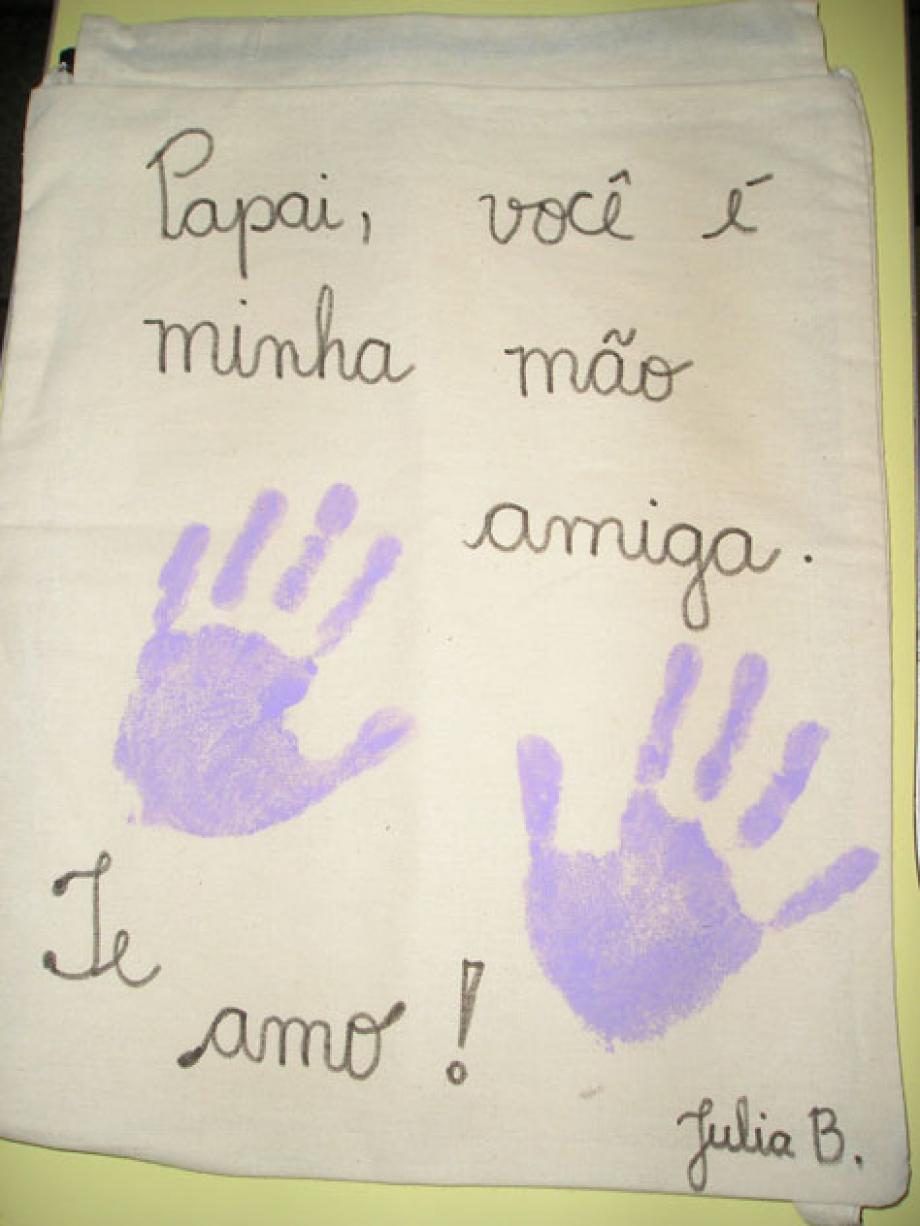 Papai, você é
minha mão
amiga.
Te
amo!
Julia B.